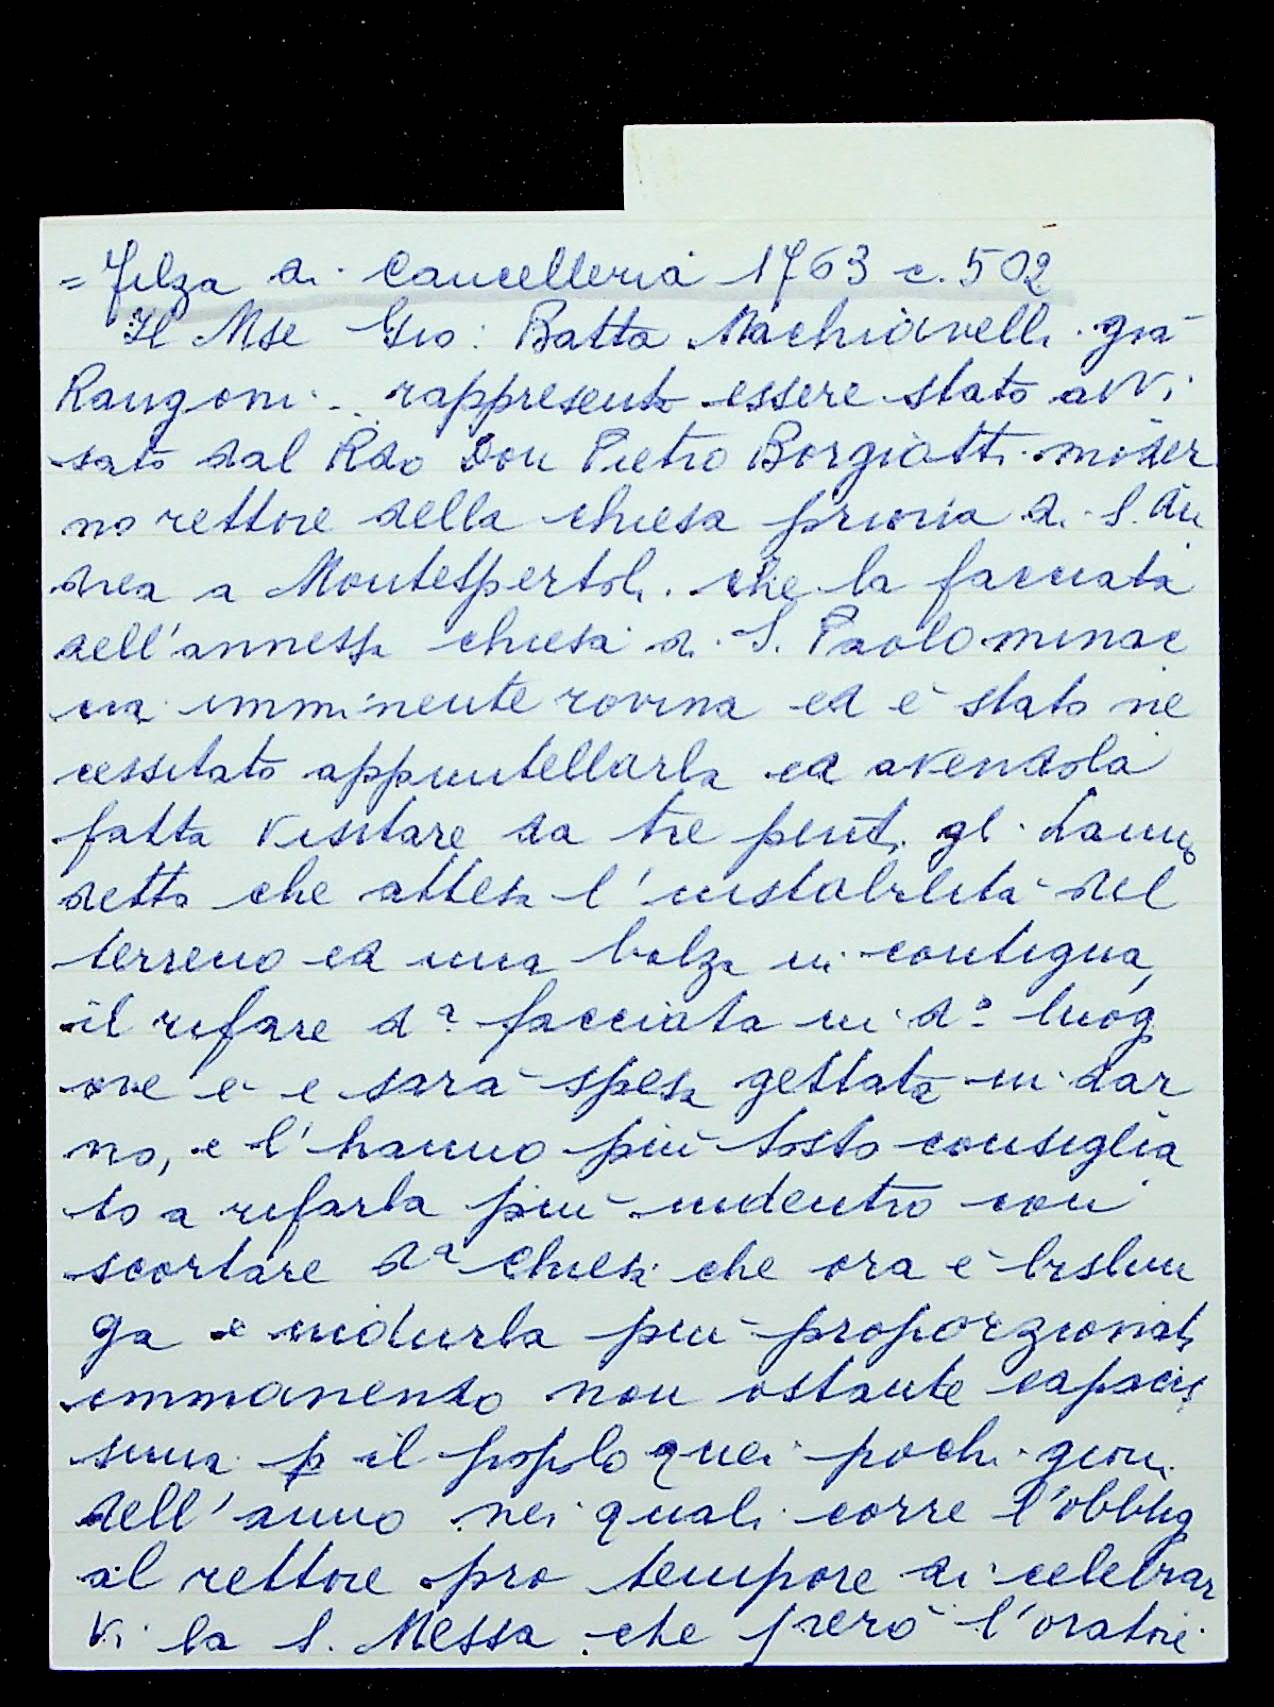 = Filza di Cancelleria 1763 c. 502
Il Mse Gio: Batta Machiavelli già
Rangoni rappresenta essere stato avvi
sato dal Rdo Don Pietro Borgiotti moder
no rettore della chiesa prioria di S. An
drea a Montespertoli che la facciata
dell'annessa chiesa di S. Paolo minac
cia imminente rovina ed è stato ne
cessitato appuntellarla ed avendola
fatta visitare da tre periti gli hanno
detto che attesa l'instabilità del
terreno ed una balza ivi contigua,
il rifare da facciata in do luog
ove è e sarà spesa gettata indar
no, e l'hanno più tosto consiglia
to a rifarla più indentro con
scortare da chiesa che ora è bislun
ga e ridurla più proporzionata
rimanendo non ostante capacis
sima p il popolo quei pochi giorni
dell'anno nei quali corre l'obblig
al rettore pro tempore di celebrar
vi la S. Messa che però l'oratore